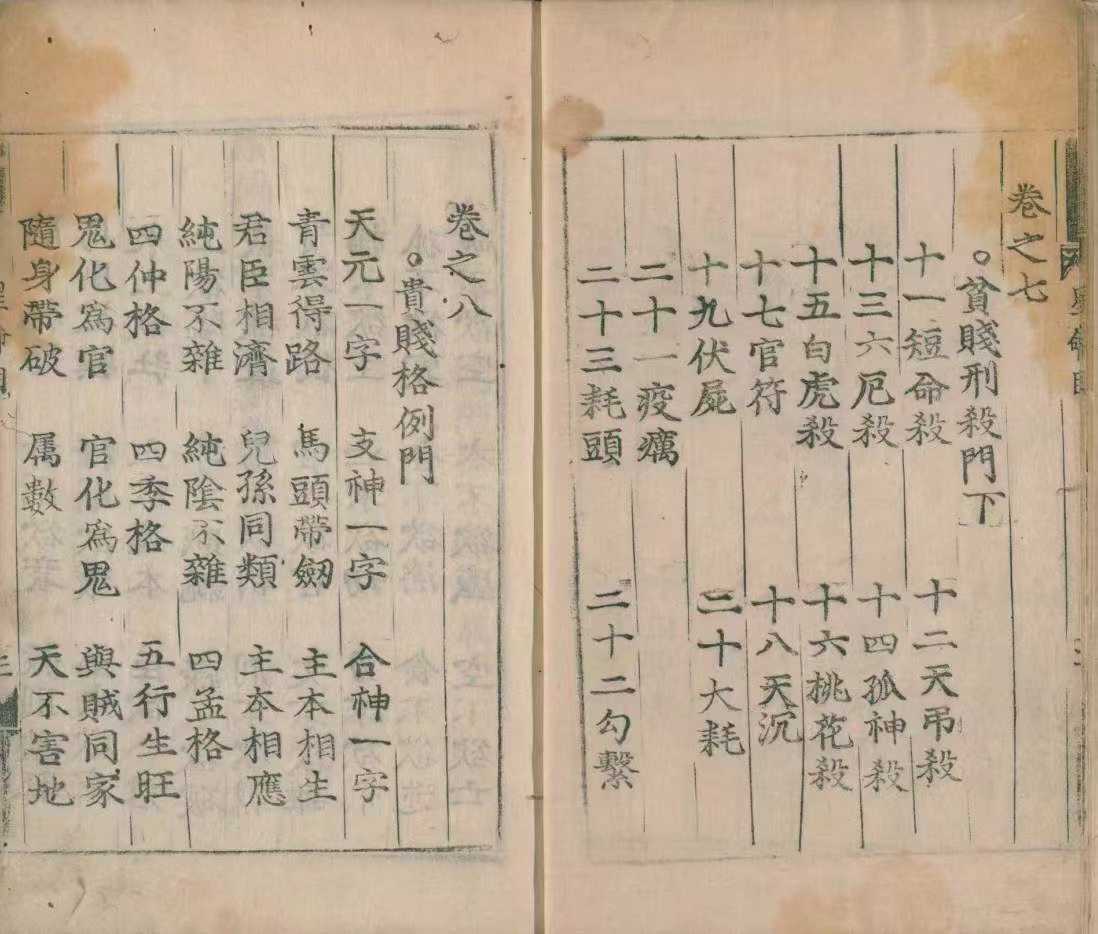 卷之七
○貧賤刑殺門下
十一短命殺 十二天吊殺
十三六厄殺 十四孤神殺
十五白虎殺 十六桃花殺
十七官符 十八天沉
十九伏屍 二十大耗
二十一疫癘
二十三耗頭 二十二勾繫
卷之八
○貴賤格例門
天元一字 支神一字 合神一字
青雲得路 馬頭帶劒 主本相生
君臣相濟 兒孫同類 主本相應
純陽不雜 純陰不雜 四孟格
四仲格 四季格 五行生旺
鬼化為官 官化為鬼 與賊同家
隨身帶破 属數 天不害地